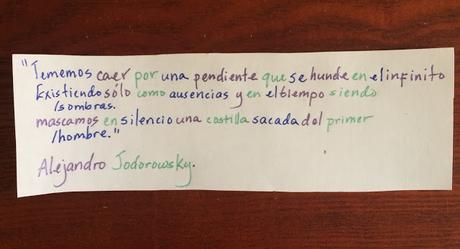 "Tememos caer por una pendiente que se hunde en el infinito
Existiendo sólo como ausencias y en el tiempo siendo
/sombras.
mascamos en silencio una costilla sacada del primer
/hombre."
Alejandro Jodorowsky.